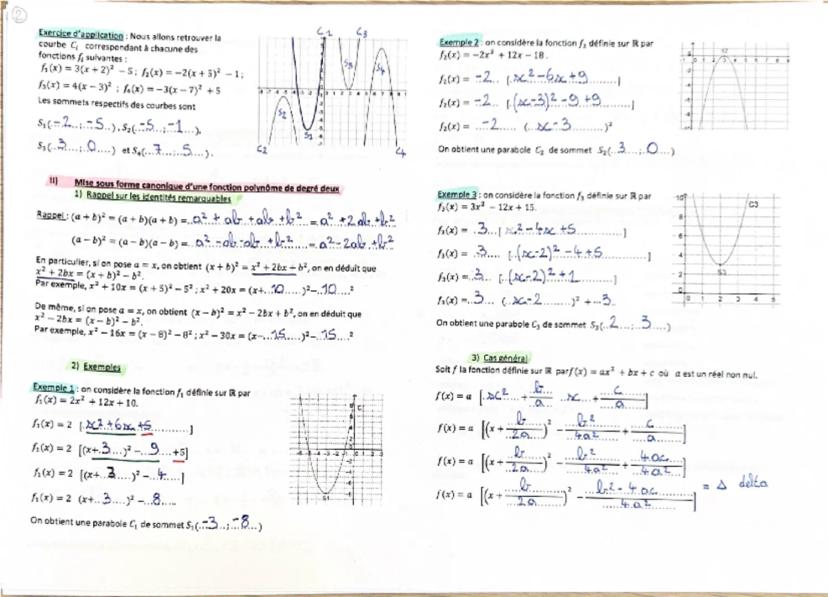 ②
Exercice d'application : Nous allons retrouver la
courbe Cᵢ correspondant à chacune des
fonctions fᵢ suivantes :
f₁(x) = 3(x + 2)² − 5 ; f₂(x) = −2(x + 5)² − 1 ;
f₃(x) = 4(x − 3)² ; f₄(x) = −3(x − 7)² + 5
Les sommets respectifs des courbes sont
S₁(..−2...;..−5..) , S₂(..−5..;..−1....),
S₃(...3...;...0....) et S₄(...7...;...5....).
C1
C3
S3
S4
S2
S1
C2
C4
II) Mise sous forme canonique d'une fonction polynôme de degré deux
1) Rappel sur les identités remarquables
Rappel : (a + b)² = (a + b)(a + b) = a² + ab + ab + b² = a² + 2ab + b²
(a − b)² = (a − b)(a − b) = a² − ab − ab + b² = a² − 2ab + b²
En particulier, si on pose a = x, on obtient (x + b)² = x² + 2bx + b², on en déduit que
x² + 2bx = (x + b)² − b².
Par exemple, x² + 10x = (x + 5)² − 5² ; x² + 20x = (x+...10......)²−...10....²
De même, si on pose a = x, on obtient (x − b)² = x² − 2bx + b², on en déduit que
x² − 2bx = (x − b)² − b².
Par exemple, x² − 16x = (x − 8)² − 8² ; x² − 30x = (x−...15......)²−...15....²
2) Exemples
Exemple 1 : on considère la fonction f₁ définie sur ℝ par
f₁(x) = 2x² + 12x + 10.
f₁(x) = 2 [ x² + 6x + 5 ............]
f₁(x) = 2 [(x+..3....)² −...9.... +5]
f₁(x) = 2 [(x+...3....)² −...4.....]
f₁(x) = 2 (x+..3.....)² −...8.....
On obtient une parabole C₁ de sommet S₁(..−3...;..−8...)
S1
Exemple 2 : on considère la fonction f₂ définie sur ℝ par
f₂(x) = −2x² + 12x − 18.
f₂(x) = ...−2... [..x² − 6x + 9.........]
f₂(x) = ...−2... [..(x−3)² − 9 + 9.......]
f₂(x) = ...−2..... (...x − 3..........)²
On obtient une parabole C₂ de sommet S₂(..3....;...0....)
Exemple 3 : on considère la fonction f₃ définie sur ℝ par
f₃(x) = 3x² − 12x + 15.
f₃(x) = ..3...[ x² − 4x + 5 ...........]
f₃(x) = ..3.... [..(x−2)² − 4 + 5 ........]
f₃(x) = ..3... [..(x−2)² + 1..........]
f₃(x) = ..3... (..x − 2.........)² +...3.
On obtient une parabole C₃ de sommet S₃(..2....;...3.....)
C3
S3
3) Cas général
Soit f la fonction définie sur ℝ par f(x) = ax² + bx + c où a est un réel non nul.
f(x) = a [ x² + b/a x + c/a ]
f(x) = a [(x + b/2a)² − b²/4a² + c/a]
f(x) = a [(x + b/2a)² − b²/4a² + 4ac/4a²]
f(x) = a [(x + b/2a)² − b² − 4ac/4a²] = Δ delta